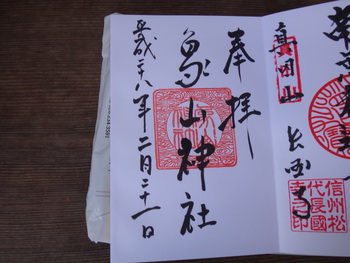 奉拝
象山神社
平成二十八年二月二十一日
真田山
長國寺
信州松
代長國
寺印